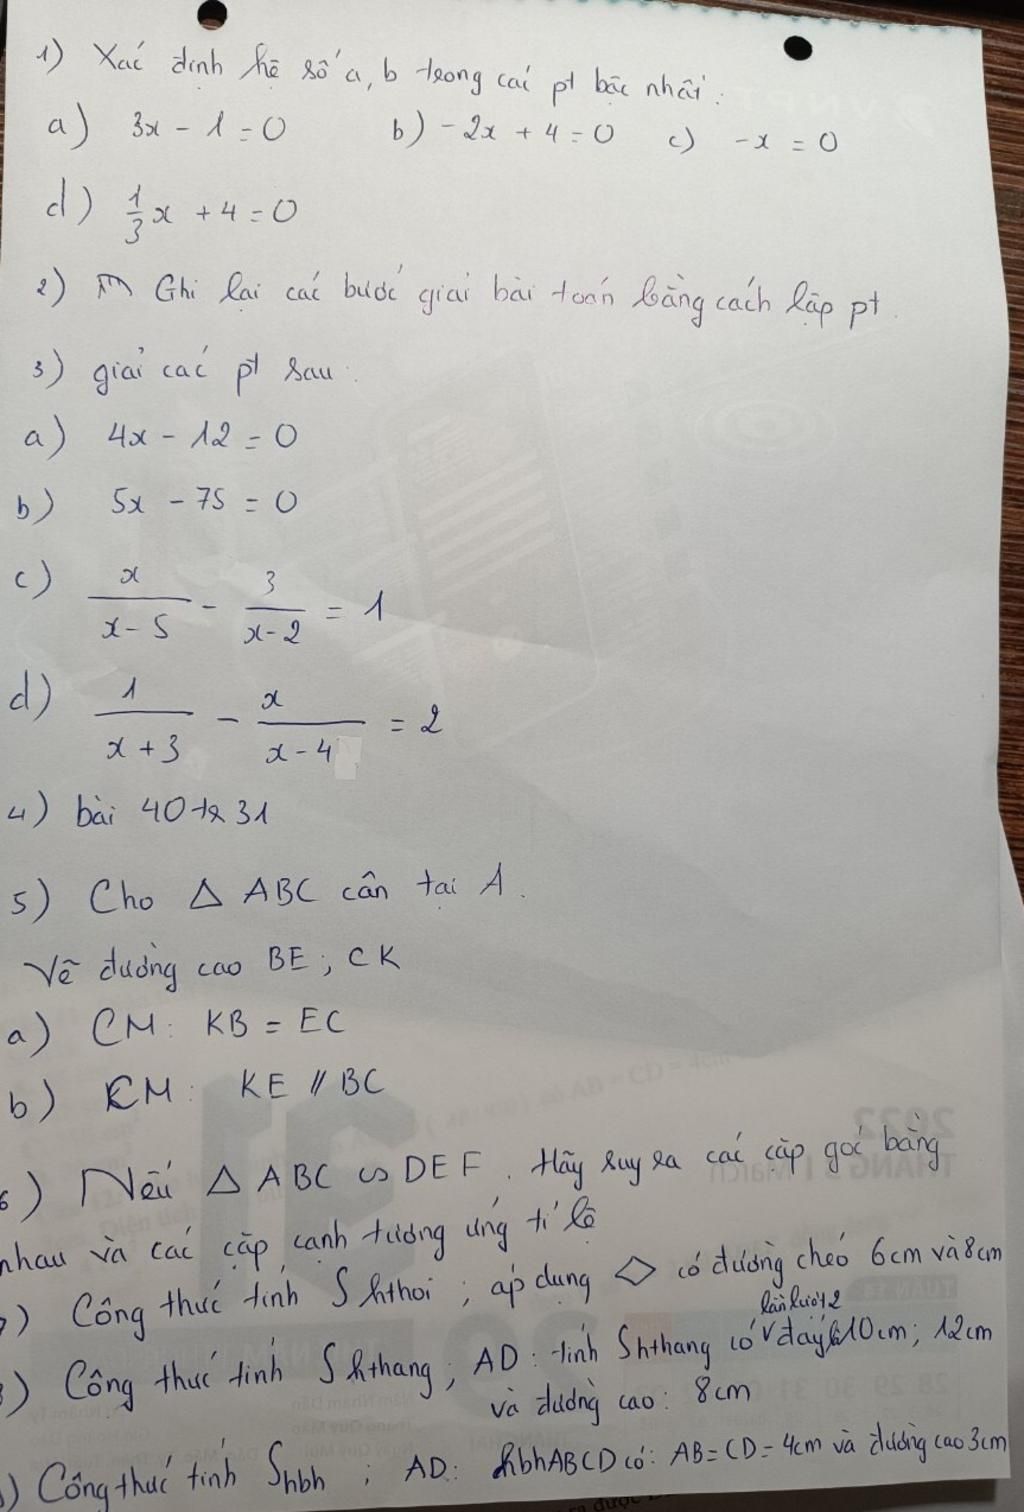 1) Xác định hệ số a, b trong các pt bậc nhất:
a) 3x - 1 = 0 b) -2x + 4 = 0 c) -x = 0
d) 1/3 x + 4 = 0
2) Ghi lại các bước giải bài toán bằng cách lập pt.
3) giải các pt sau:
a) 4x - 12 = 0
b) 5x - 75 = 0
c) x/(x-5) - 3/(x-2) = 1
d) 1/(x+3) - x/(x-4) = 2
4) bài 40 tr 31
5) Cho Δ ABC cân tại A.
Vẽ đường cao BE; CK
a) CM: KB = EC
b) CM: KE // BC
6) Nếu Δ ABC ∽ DEF. Hãy suy ra các cặp góc bằng
nhau và các cặp cạnh tương ứng tỉ lệ
) Công thức tính S hthoi; áp dụng ◇ có đường chéo 6cm và 8cm
) Công thức tính S hthang; AD: tính S hthang có lần lượt 2 đáy là 10cm; 12cm
và đường cao: 8cm
) Công thức tính S hbh; AD: hbh ABCD có: AB = CD = 4cm và đường cao 3cm